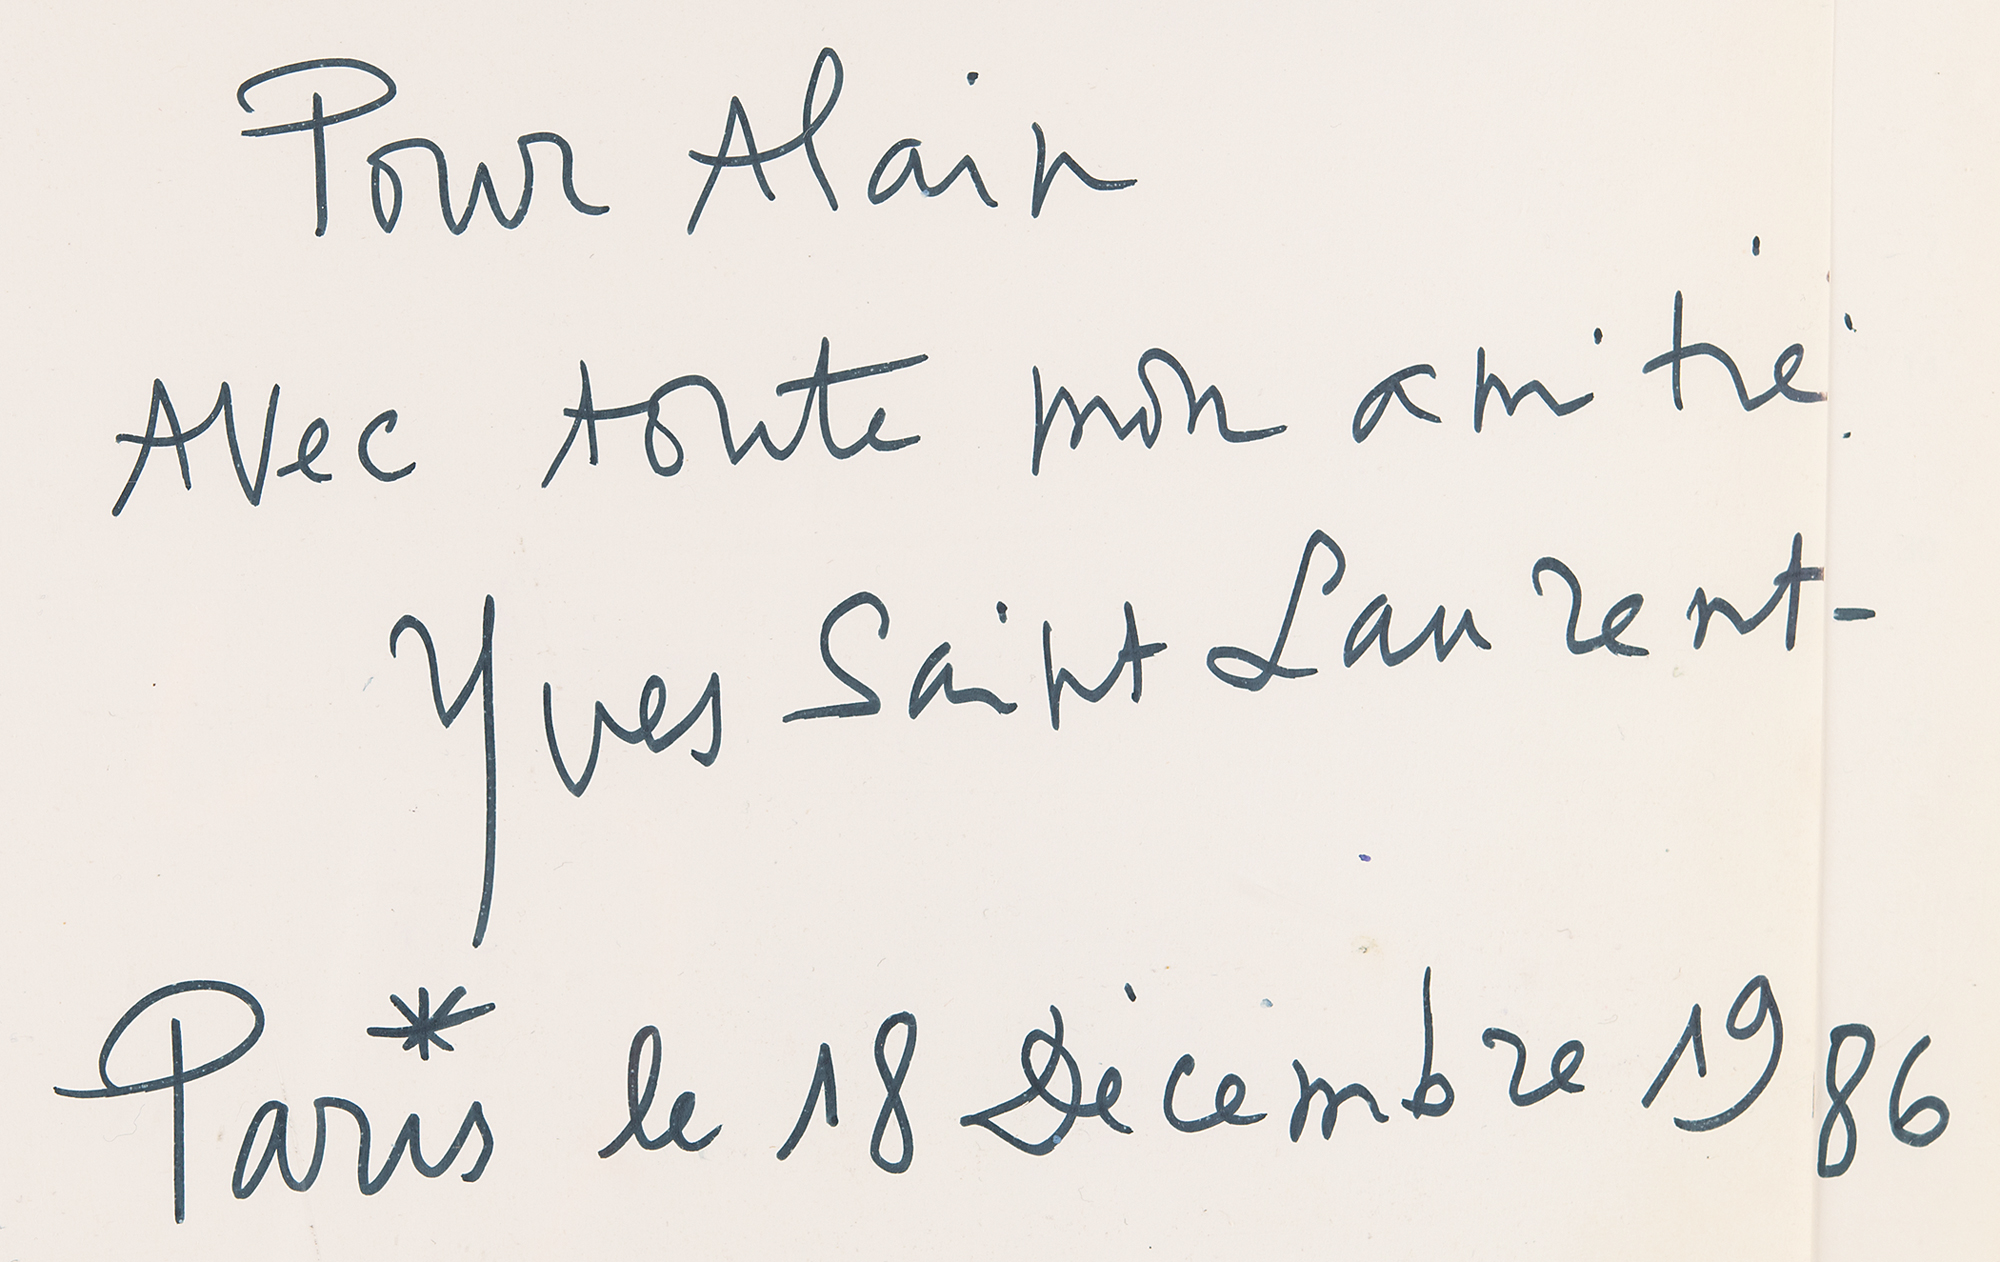 Pour Alain
Avec toute mon amitié.
Yves Saint Laurent-
Paris le 18 Décembre 1986